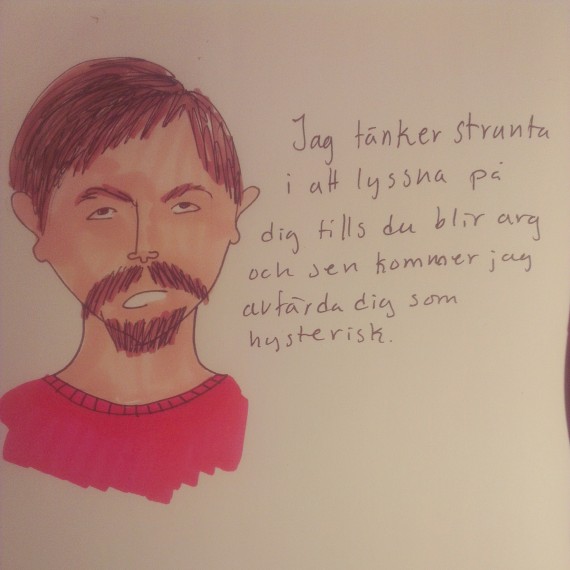 Jag tänker strunta
i att lyssna på
dig tills du blir arg
och sen kommer jag
avfärda dig som
hysterisk.